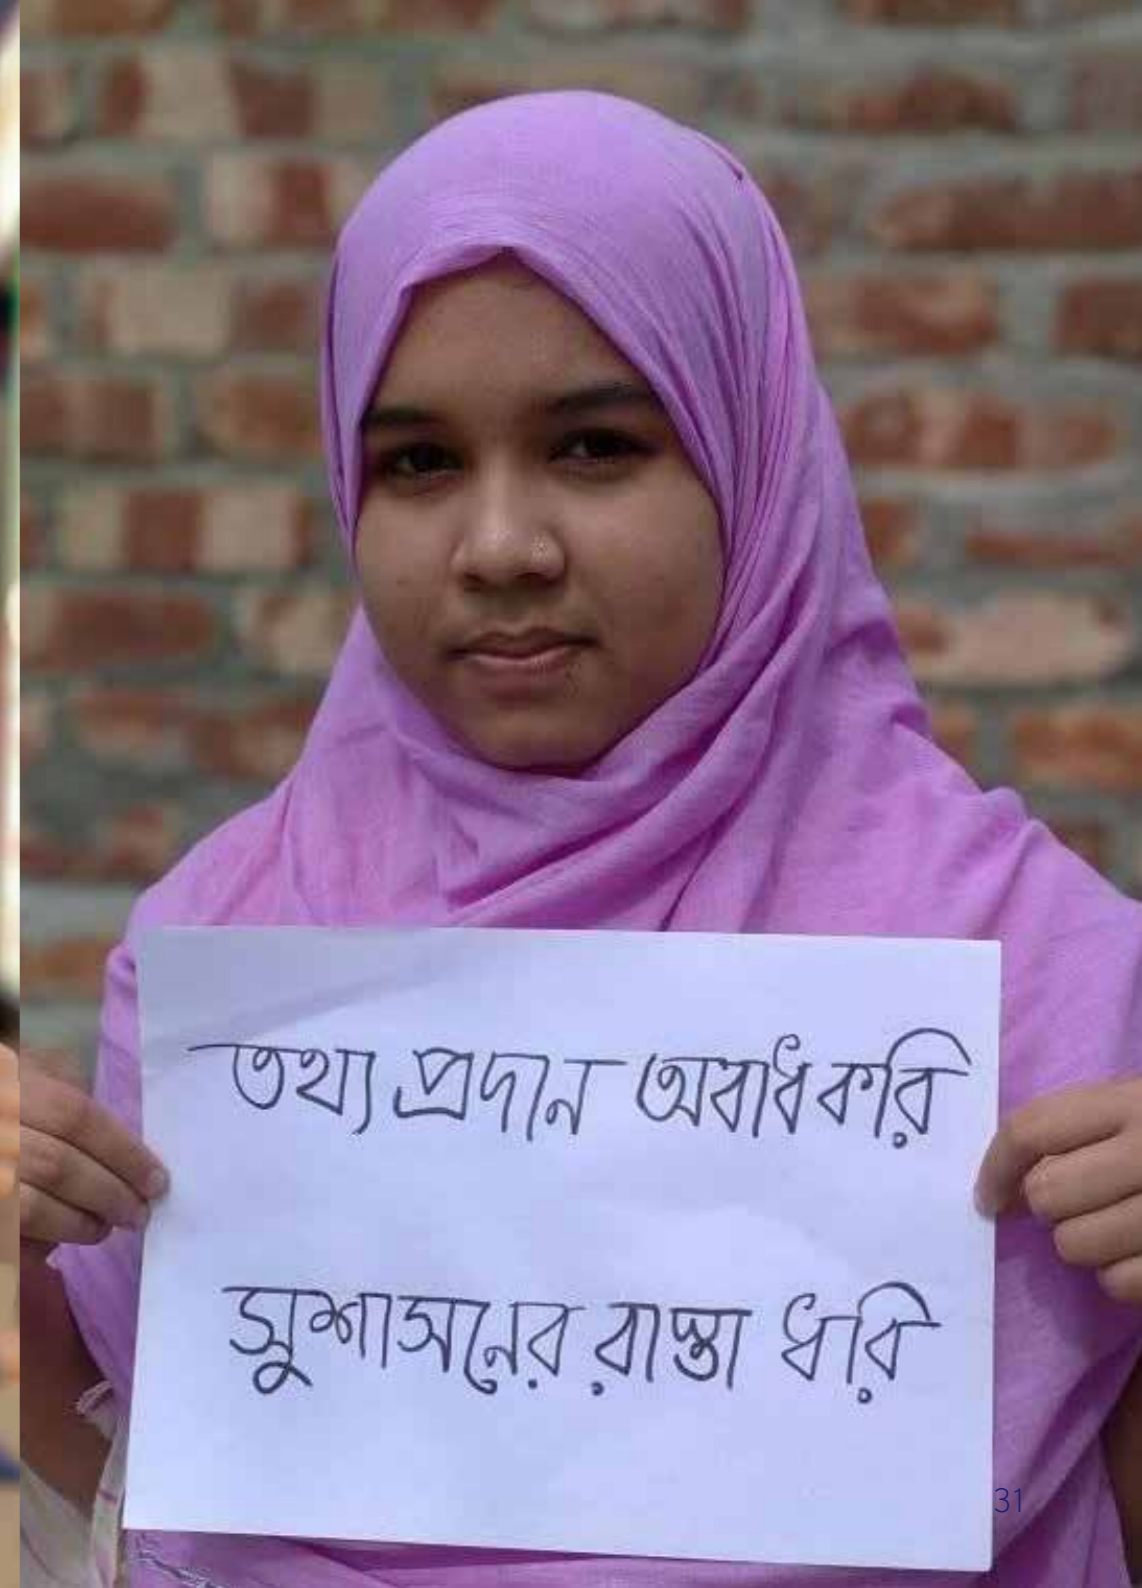 তথ্য প্রদান অবাধ করি
সুশাসনের রাস্তা ধরি
31